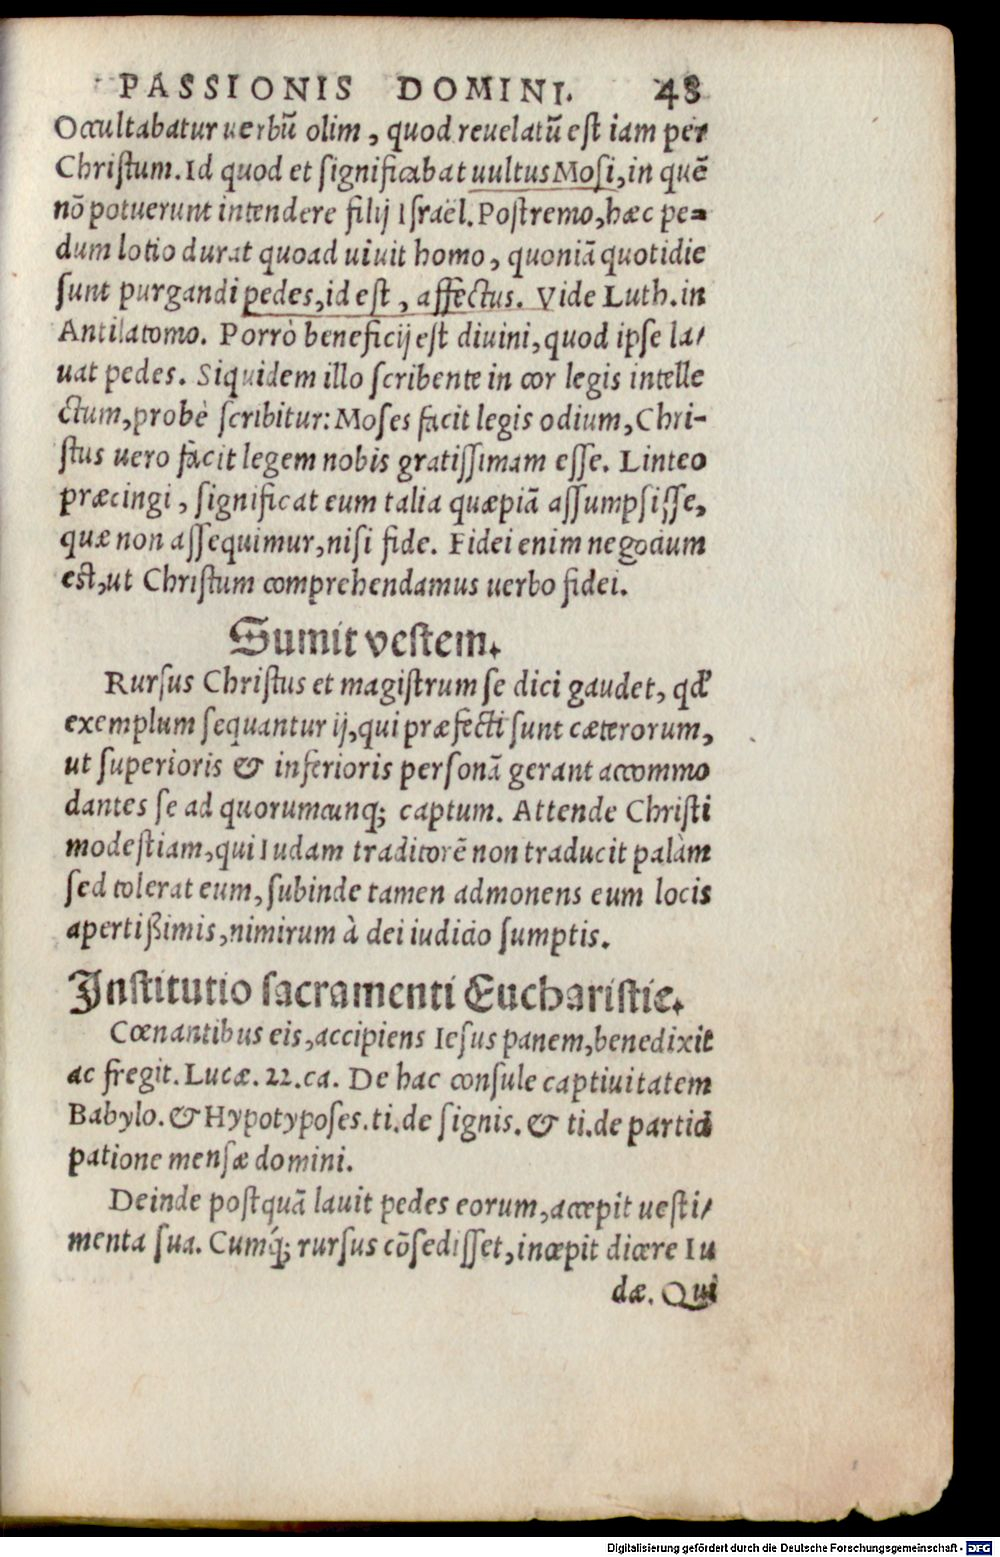 PASSIONIS DOMINI. 48
Occultabatur uerbũ olim, quod reuelatũ est iam per
Christum. Id quod et significabat uultus Mosi, in quẽ
nõ potuerunt intendere filij Israël. Postremo, hæc pe-
dum lotio durat quoad uiuit homo, quoniã quotidie
sunt purgandi pedes, id est, affectus. Vide Luth. in
Antilatomo. Porrò beneficij est diuini, quod ipse la/
uat pedes. Siquidem illo scribente in cor legis intelle
ctum, probè scribitur: Moses facit legis odium, Chri-
stus uero facit legem nobis gratissimam esse. Linteo
præcingi, significat eum talia quæpiã assumpsisse,
quæ non assequimur, nisi fide. Fidei enim negocium
est, ut Christum comprehendamus uerbo fidei.
Sumit vestem.
Rursus Christus et magistrum se dici gaudet, qd'
exemplum sequantur ij, qui præfecti sunt cæterorum,
ut superioris & inferioris personã gerant accommo
dantes se ad quorumcunq; captum. Attende Christi
modestiam, qui Iudam traditorẽ non traducit palàm
sed tolerat eum, subinde tamen admonens eum locis
apertißimis, nimirum à dei iudicio sumptis.
Institutio sacramenti Eucharistie.
Cœnantibus eis, accipiens Iesus panem, benedixit
ac fregit. Lucæ. 22. ca. De hac consule captiuitatem
Babylo. & Hypotyposes. ti. de signis. & ti. de partici
patione mensæ domini.
Deinde postquã lauit pedes eorum, accepit uesti/
menta sua. Cumq́; rursus cõsedisset, incepit dicere Iu
dæ. Qui
Digitalisierung gefördert durch die Deutsche Forschungsgemeinschaft - DFG